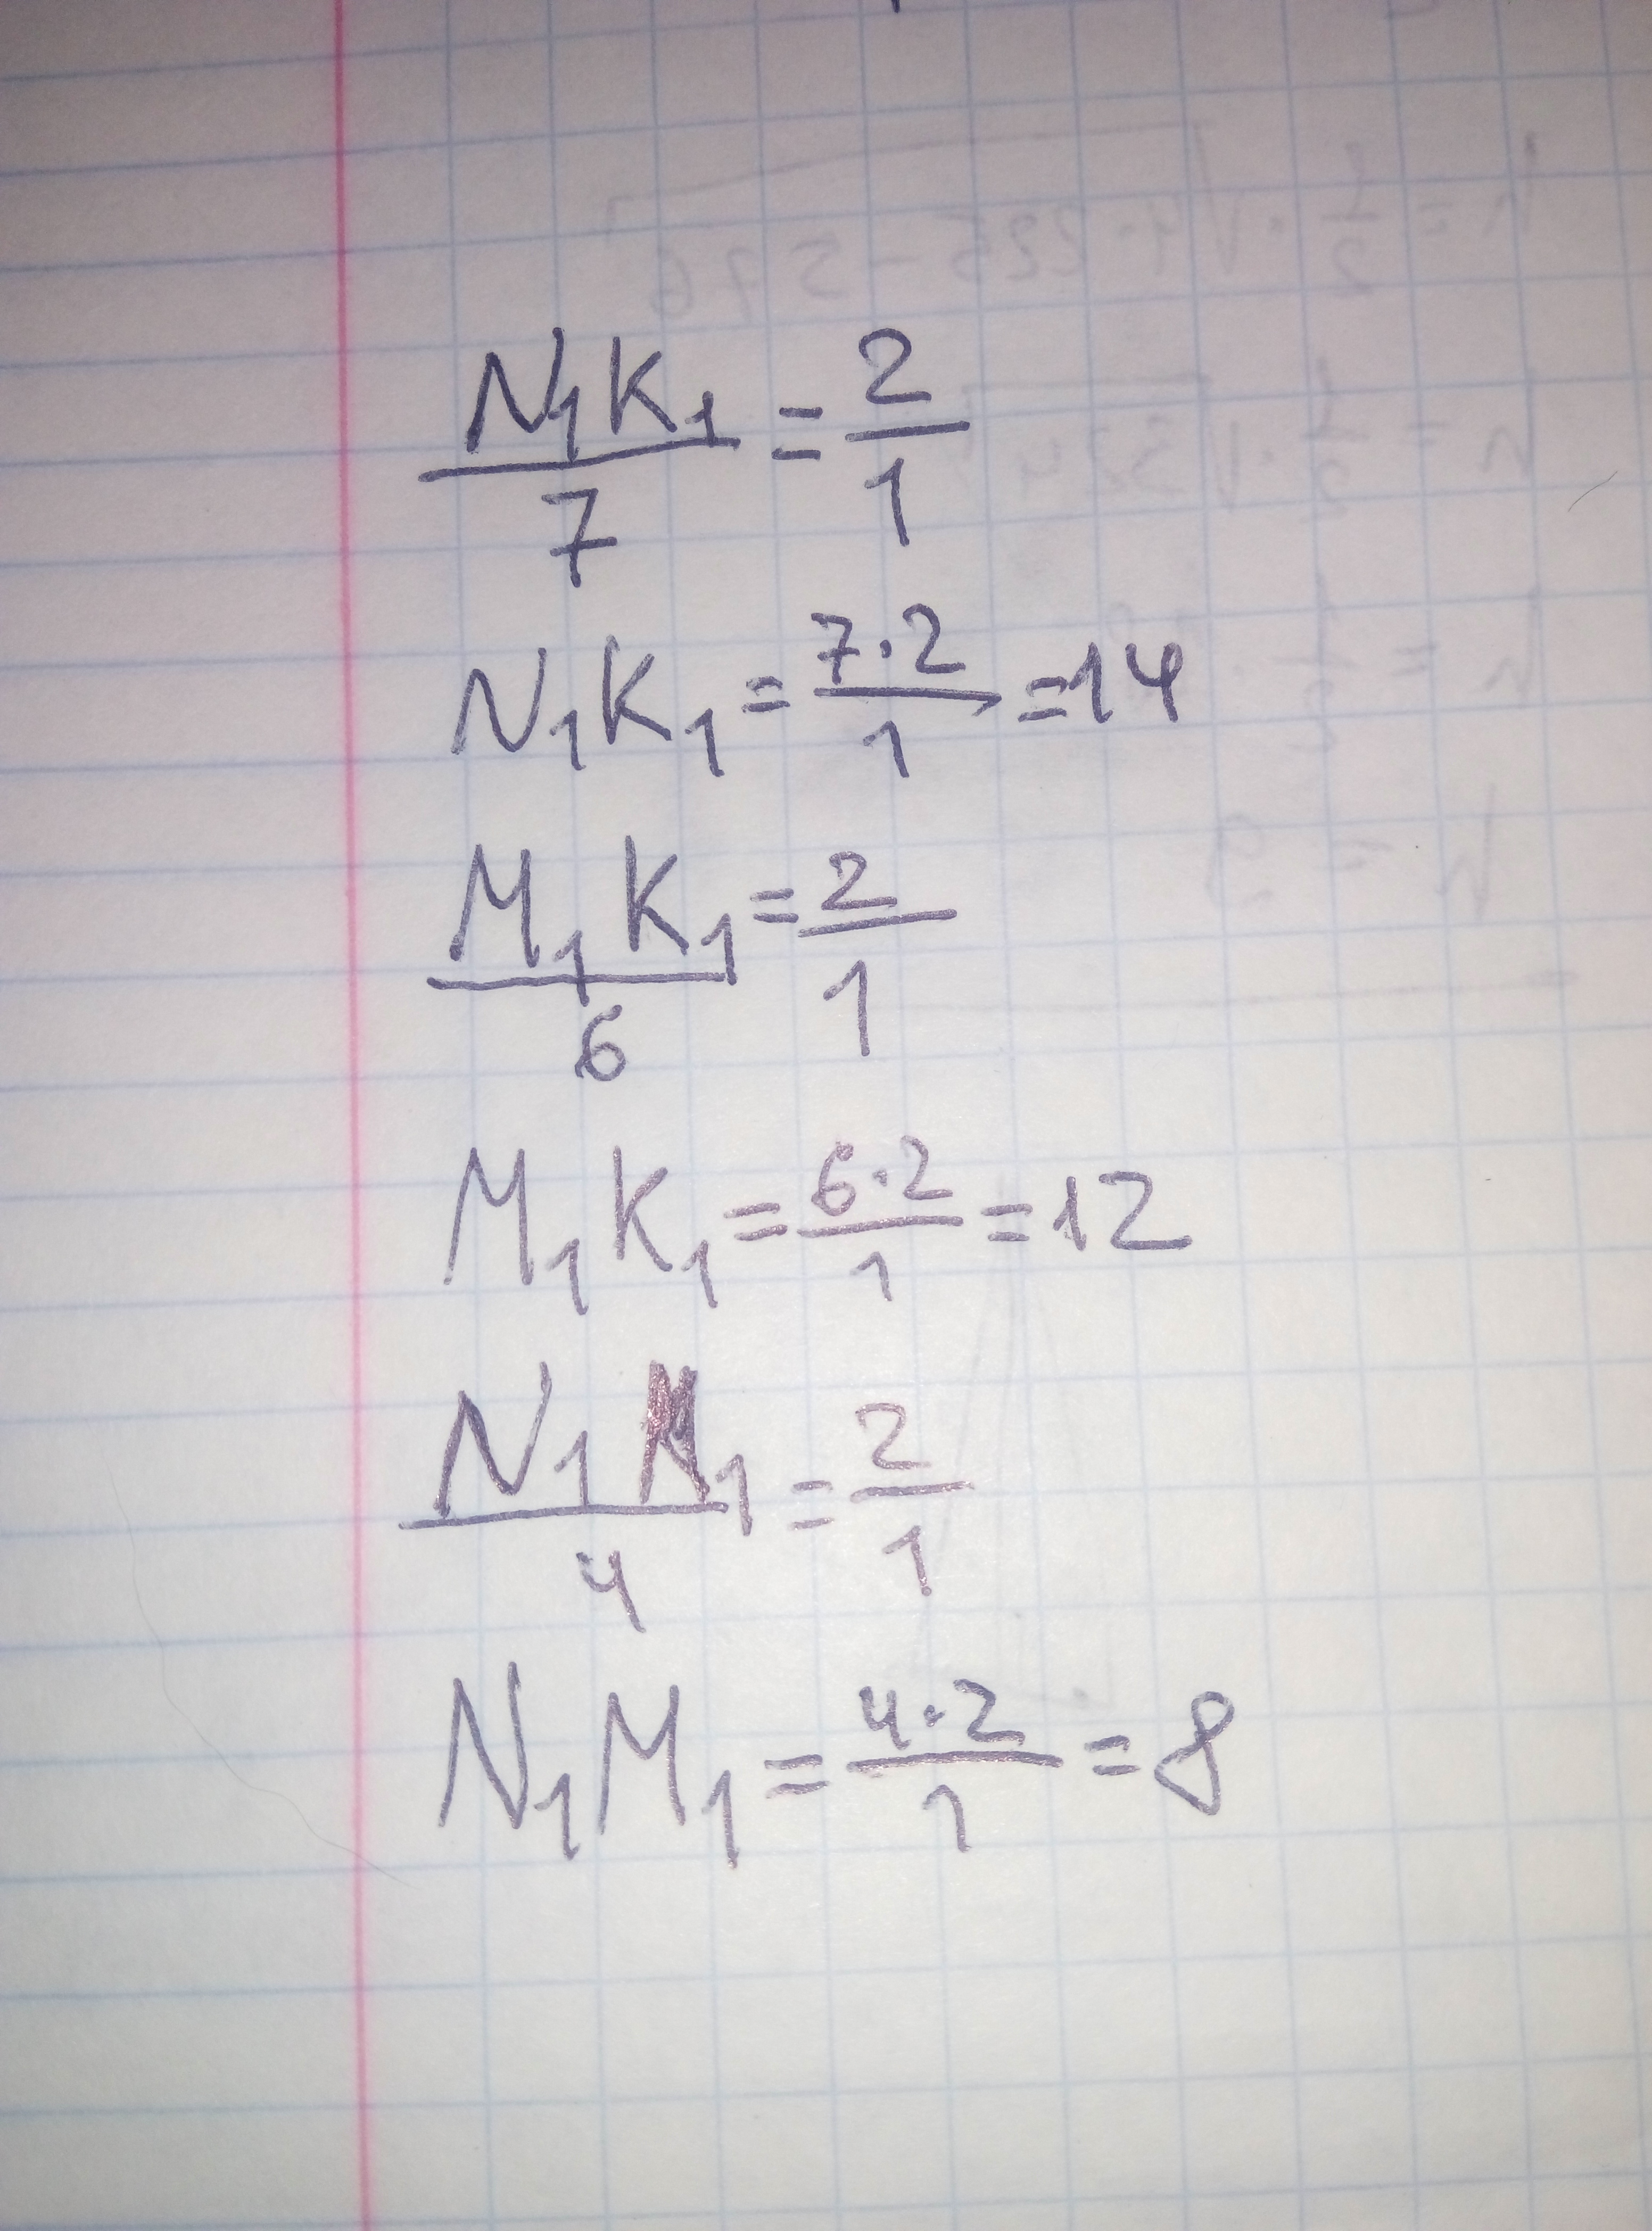 N₁K₁/7 = 2/1
N₁K₁ = 7·2/1 = 14
M₁K₁/6 = 2/1
M₁K₁ = 6·2/1 = 12
N₁M₁/4 = 2/1
N₁M₁ = 4·2/1 = 8